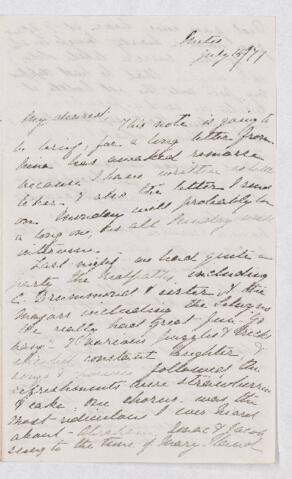 Metis
July 14th/77
My dearest,
This note is going to
be brief, for a long letter from
Nina has awaked remorse
because I have written so little
to her, & also the letter I send
on Monday will probably be
a long one, as all Sunday will
intervene.
Last night we had quite a
party the Redpaths, including
C. Drummond & sister & the
Majors including the
& really had great fun.
various puzzles & tricks
constant laughter &
songs & followed the
refreshments were strawberries
& cake. One chorus was the
most ridiculous I ever heard
about Abraham, Isaac & Jacob
sung to the tune of Mary